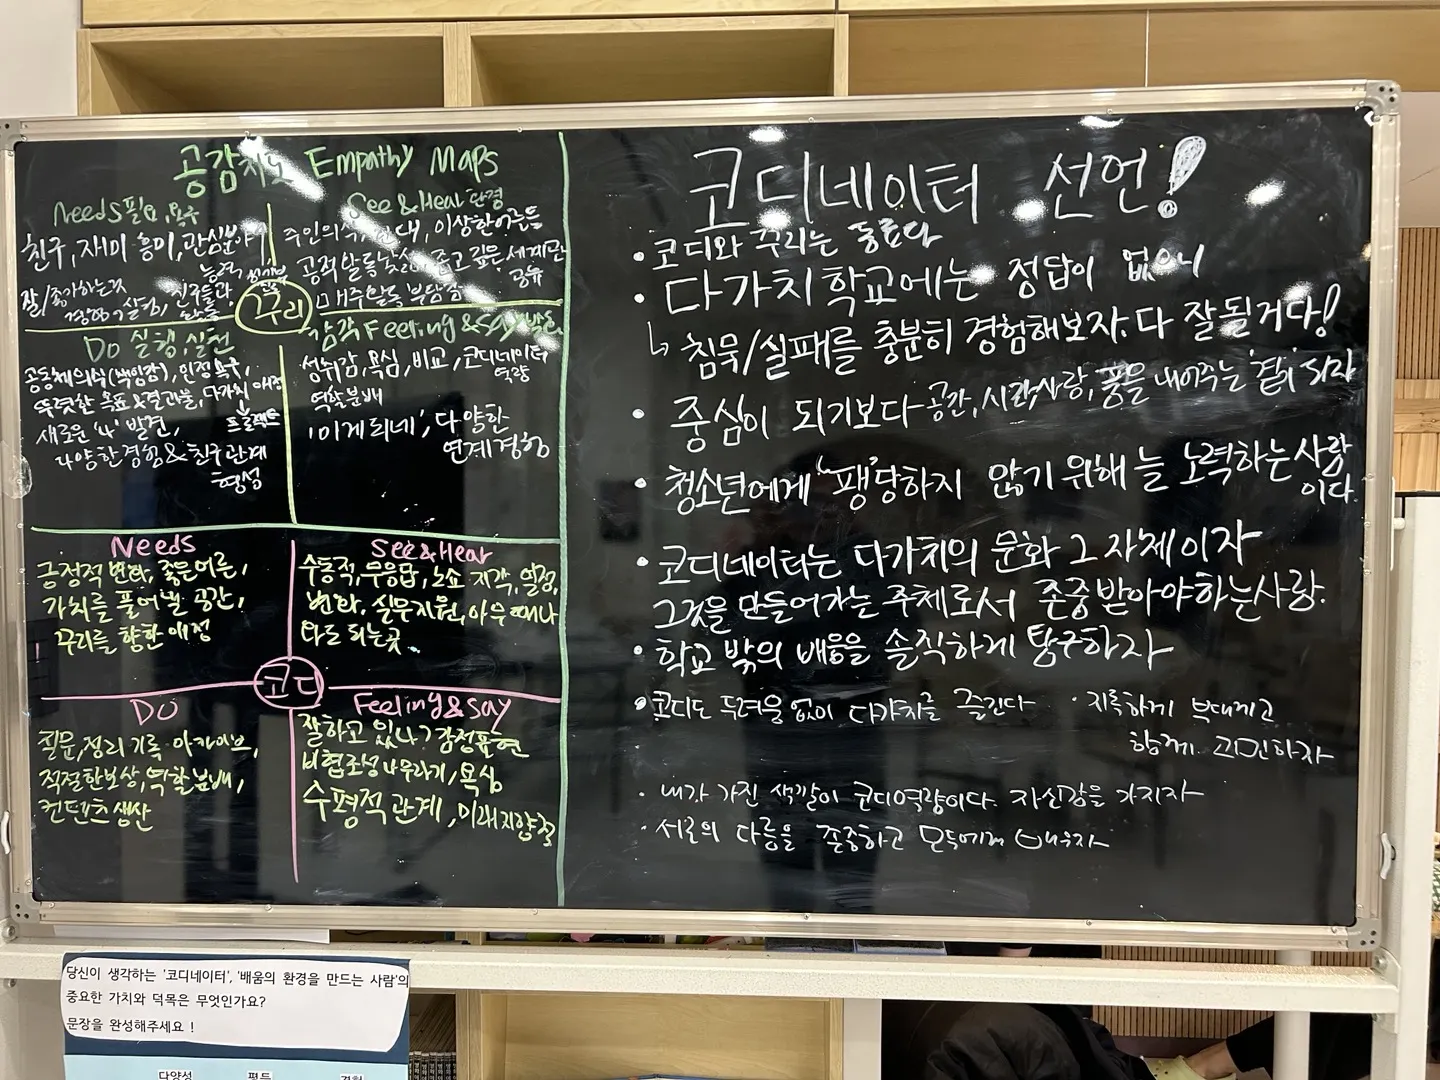 공감지도 Empathy Maps
Needs 필요, 욕구
친구, 재미 흥미, 관심분야
잘/좋아하는것
친구들과
See & Hear 환경
주인의식, 이상한어른들
공적활동
세계관
공유
매주활동 부담감
꾸리
Do 실행, 실천
공동체의식(책임감), 인정욕구,
뚜렷한 목표&결과물, 다가치
프로젝트
새로운 '나' 발견,
다양한경험 & 친구관계
형성
감각 Feeling & Say
성취감, 욕심, 비교, 코디네이터
역량
역할분배
'이게되네', 다양한
연계경험
Needs
긍정적 변화, 젊은어른,
가치를 풀어낼 공간,
꾸리를 향한 애정
See & Hear
수동적, 무응답, 노쇼, 지각, 열정,
변화, 실무지원, 아무때나
와도 되는곳.
코디
DO
질문, 정리 기록 아카이브,
적절한보상, 역할분배,
컨텐츠 생산
Feeling & Say
잘하고 있나? 감정표현
비협조성 나무라기, 욕심
수평적 관계, 미래지향적
코디네이터 선언!
• 코디와 꾸리는 동료다
• 다가치학교에는 정답이 없으니
↳ 침묵/실패를 충분히 경험해보자. 다 잘될거다!
• 중심이 되기보다 공간, 시간, 사랑, 품을 내어주는 '곁'이 되자
• 청소년에게 '팽'당하지 않기 위해 늘 노력하는 사람
이다.
• 코디네이터는 다가치의 문화 그 자체이자
그것을 만들어가는 주체로서 존중받아야하는사람.
• 학교 밖의 배움을 솔직하게 탐구하자
• 코디도 두려움없이 다가치를 즐긴다 • 지독하게 부대끼고
함께 고민하자
• 내가 가진 색깔이 코디역량이다. 자신감을 가지자
• 서로의 다름을 존중하고 모두에게 배우자
당신이 생각하는 '코디네이터', '배움의 환경을 만드는 사람'의
중요한 가치와 덕목은 무엇인가요?
문장을 완성해주세요 !
다양성 평등 경험